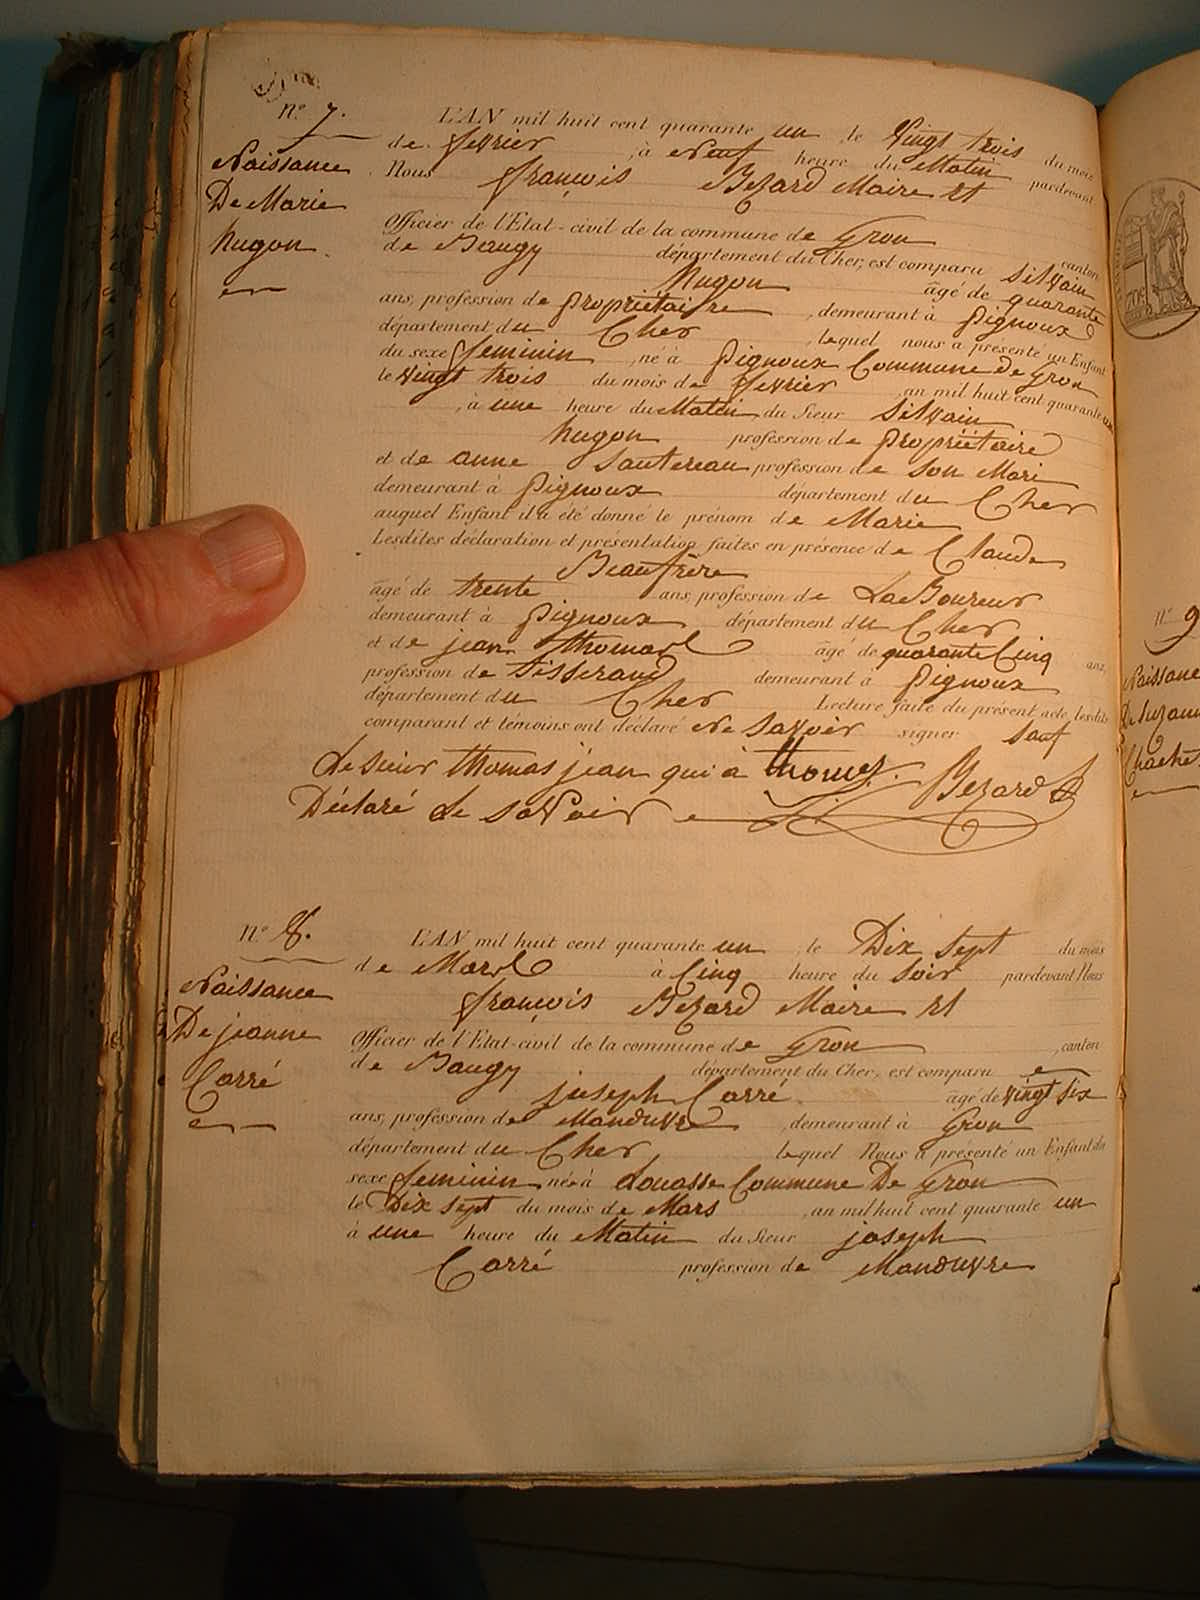 n.º 7.
Naissance
De Marie
hugon.
L'AN mil huit cent quarante un, le Vingt trois du mois
de fevrier, à Neuf heure du Matin pardevant
Nous françois Bezard Maire Et
Officier de l'Etat-civil de la commune de Gron canton
de Baugy département du Cher, est comparu Silvain
Hugon âgé de quarante
ans, profession de propriétaire, demeurant à pignoux
département du Cher, lequel nous a présenté un Enfant
du sexe feminin, né à pignoux Commune de Gron
le Vingt trois du mois de fevrier, an mil huit cent quarante un
, à une heure du Matin, du Sieur Silvain
hugon profession de propriétaire
et de anne Sautereau profession de Son Mari
demeurant à pignoux département du Cher
auquel Enfant il a été donné le prénom de Marie
Lesdites déclaration et présentation faites en présence de Claude
Beaufrère
âgé de trente ans, profession de LaBoureur
demeurant à pignoux département du Cher
et de jean thomas âgé de quarante Cinq ans,
profession de tisserand demeurant à pignoux
département du Cher Lecture faite du présent acte, lesdits
comparant et témoins ont déclaré Ne Savoir signer Sauf
Le Sieur thomas jean qui à thomas. Bezard
Déclaré Le saVoir
n.º 8.
Naissance
De jeanne
Carré
L'AN mil huit cent quarante un, le Dix Sept du mois
de Mars à Cinq heure du Soir pardevant Nous
françois Bezard Maire Et
Officier de l'Etat-civil de la commune de Gron, canton
de Baugy département du Cher, est comparu
joseph Carré. âgé de Vingt Six
ans, profession de ManŒuvre, demeurant à Gron
département du Cher, lequel Nous a présenté un Enfant du
sexe feminin née à Louasse Commune De Gron
le Dix Sept du mois de Mars, an mil huit cent quarante un
à une heure du Matin du Sieur joseph
Carré profession de ManŒuvre
70c
n.º 9
Naissance
De Suzanne